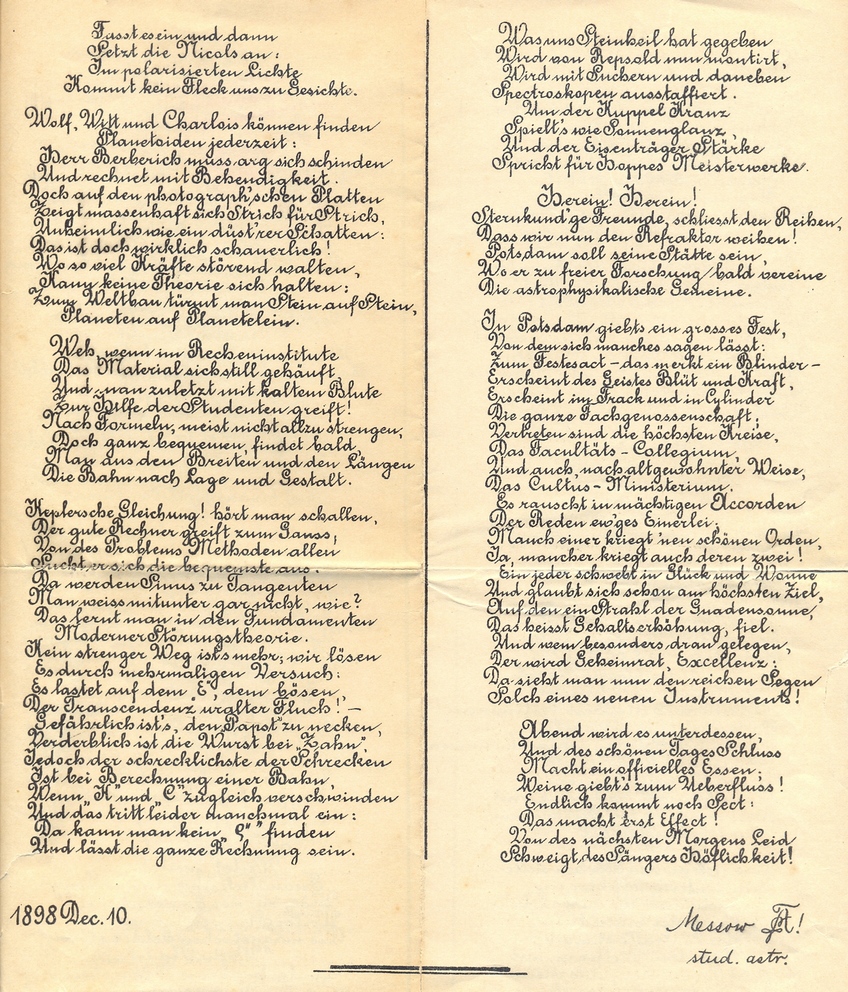 Fasst es ein und dann
Setzt die Nicols an:
Im polarisierten Lichte
Kommt kein Fleck uns zu Gesichte.
Wolf, Witt und Charlois können finden
Planetoiden jederzeit:
Herr Berberich muss arg sich schinden
Und rechnet mit Behendigkeit.
Doch auf den photograph'schen Platten
Zeigt massenhaft sich Strich für Strich,
Unheimlich wie ein düst'rer Schatten:
Das ist doch wirklich schauerlich!
Wo so viel Kräfte störend walten,
Kann keine Theorie sich halten:
Zum Weltbau türmt man Stein auf Stein,
Planeten auf Planetelein.
Weh, wenn im Recheninstitute
Das Material sich still gehäuft,
Und man zuletzt mit kaltem Blute
Zur Hilfe der Studenten greift!
Nach Formeln, meist nicht allzu strengen,
Doch ganz bequemen, findet bald,
Man aus den Breiten und den Längen
Die Bahn nach Lage und Gestalt.
Keplersche Gleichung! hört man schallen,
Der gute Rechner greift zum Gauss,
Von des Problems Methoden allen
Sucht er sich die bequemste aus.
Da werden Sinus zu Tangenten
Man weiss mitunter gar nicht, wie?
Das lernt man in den Fundamenten
Moderner Störungstheorie.
Kein strenger Weg ist's mehr; wir lösen
Es durch mehrmaligen Versuch:
Es lastet auf dem „E", dem bösen,
Der Transcendenz uralter Fluch! –
Gefährlich ist's, den „Papst" zu necken,
Verderblich ist die Wurst bei „Zahn",
Jedoch der schrecklichste der Schrecken
Ist bei Berechnung einer Bahn,
Wenn „K" und „C" zugleich verschwinden
Und das tritt leider manchmal ein:
Da kann man kein „ϱ" finden
Und lässt die ganze Rechnung sein.
1898 Dec. 10.
Was uns Steinheil hat gegeben
Wird von Repsold nun montirt,
Wird mit Suchern und daneben
Spectroskopen ausstaffiert.
Um der Kuppel Kranz
Spielt's wie Sonnenglanz,
Und der Eisenträger Stärke
Spricht für Hoppes Meisterwerke.
Herein! Herein!
Sternkund'ge Freunde, schliesst den Reihen,
Dass wir nun den Refraktor weihen!
Potsdam soll seine Stätte sein,
Wo er zu freier Forschung bald vereine
Die astrophysikalische Gemeine.
In Potsdam giebts ein grosses Fest,
Von dem sich manches sagen lässt:
Zum Festesact – das merkt ein Blinder –
Erscheint des Geistes Blüt und Kraft,
Erscheint im Frack und in Cylinder
Die ganze Fachgenossenschaft;
Vertreten sind die höchsten Kreise,
Das Facultäts-Collegium,
Und auch, nach altgewohnter Weise,
Das Cultus-Ministerium.
Es rauscht in mächtigen Accorden
Der Reden ew'ges Einerlei;
Manch einer kriegt 'nen schönen Orden,
Ja, mancher kriegt auch deren zwei!
Ein jeder schwebt in Glück und Wonne
Und glaubt sich schon am höchsten Ziel,
Auf den ein Strahl der Gnadensonne,
Das heisst Gehaltserhöhung, fiel.
Und wem besonders dran gelegen,
Der wird Geheimrat, Excellenz:
Da sieht man nun den reichen Segen
Solch eines neuen Instruments!
Abend wird es unterdessen,
Und des schönen Tages Schluss
Macht ein officielles Essen:
Weine giebt's zum Ueberfluss!
Endlich kommt noch Sect:
Das macht erst Effect!
Von des nächsten Morgens Leid
Schweigt des Sängers Höflichkeit!
Messow
stud. astr.